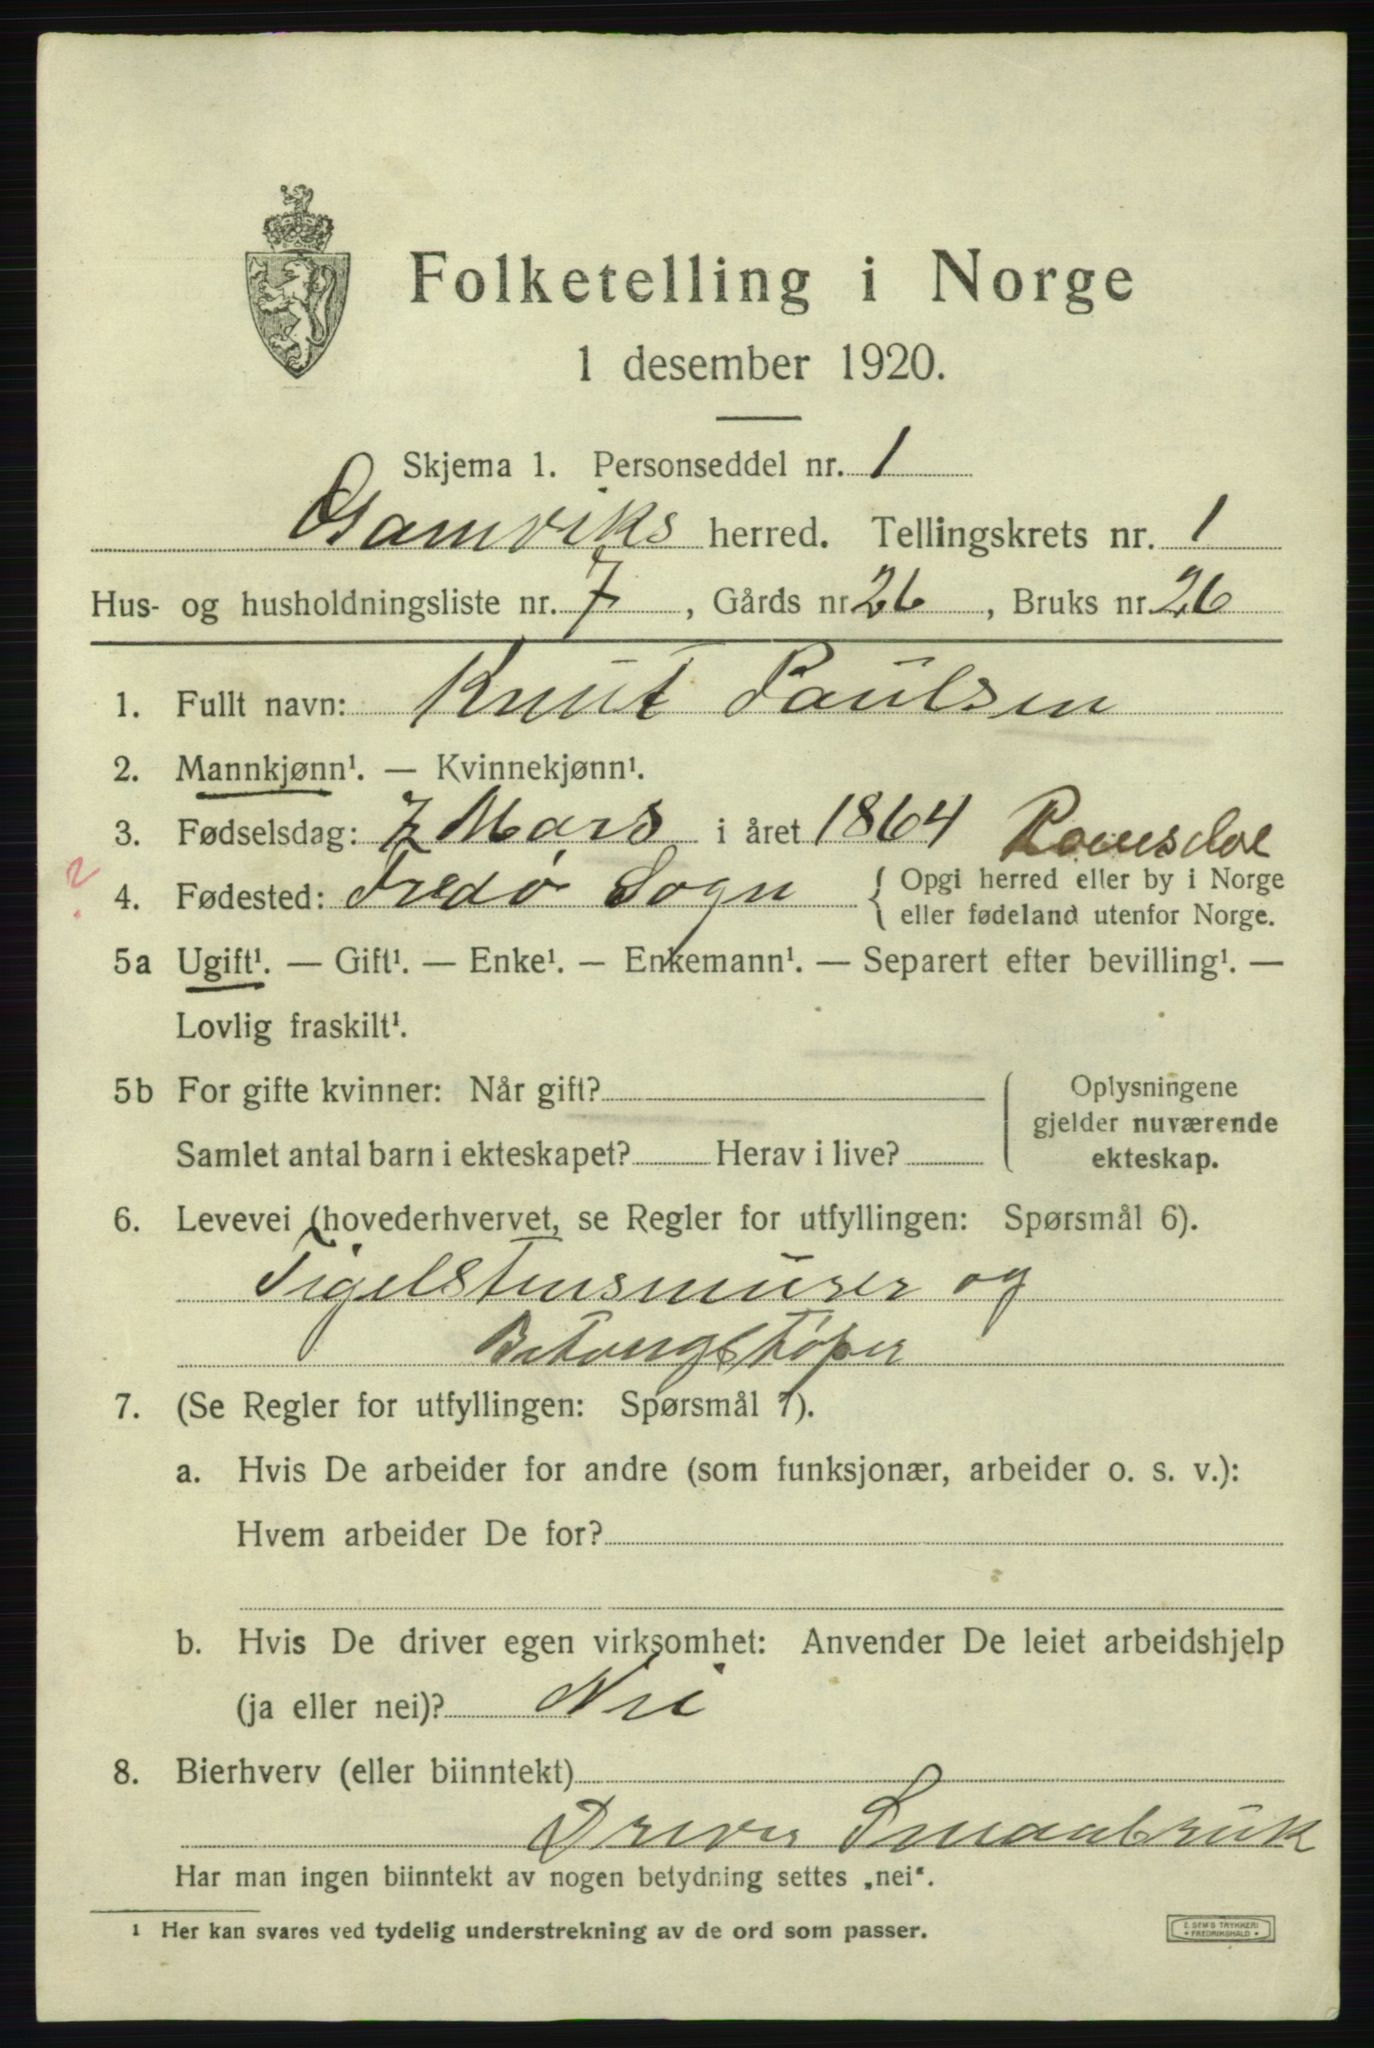 Folketelling i Norge
1 desember 1920.
Skjema 1. Personseddel nr. 1
Gamviks herred. Tellingskrets nr. 1
Hus- og husholdningsliste nr. 7, Gårds nr 26, Bruks nr. 26
1. Fullt navn: Knut Paulsen
2. Mannkjønn¹. — Kvinnekjønn¹.
3. Fødselsdag: 7 Mars i året 1864 Romsdal
? 4. Fødested: Fredø Sogn { Opgi herred eller by i Norge
eller fødeland utenfor Norge.
5a Ugift¹. — Gift¹. — Enke¹. — Enkemann¹. — Separert efter bevilling¹. —
Lovlig fraskilt¹.
5b For gifte kvinner: Når gift? Oplysningene
gjelder nuværende
Samlet antal barn i ekteskapet? Herav i live? ekteskap.
6. Levevei (hovederhvervet, se Regler for utfyllingen: Spørsmål 6).
Tigelstensmurer og
Betongstøper
7. (Se Regler for utfyllingen: Spørsmål 7).
a. Hvis De arbeider for andre (som funksjonær, arbeider o. s. v.):
Hvem arbeider De for?
b. Hvis De driver egen virksomhet: Anvender De leiet arbeidshjelp
(ja eller nei)? Nei
8. Bierhverv (eller biinntekt)
Driver Smaabruk
Har man ingen biinntekt av nogen betydning settes „nei“.
1 Her kan svares ved tydelig understrekning av de ord som passer.
E. SEM'S TRYKKERI
* FREDRIKSHALD *